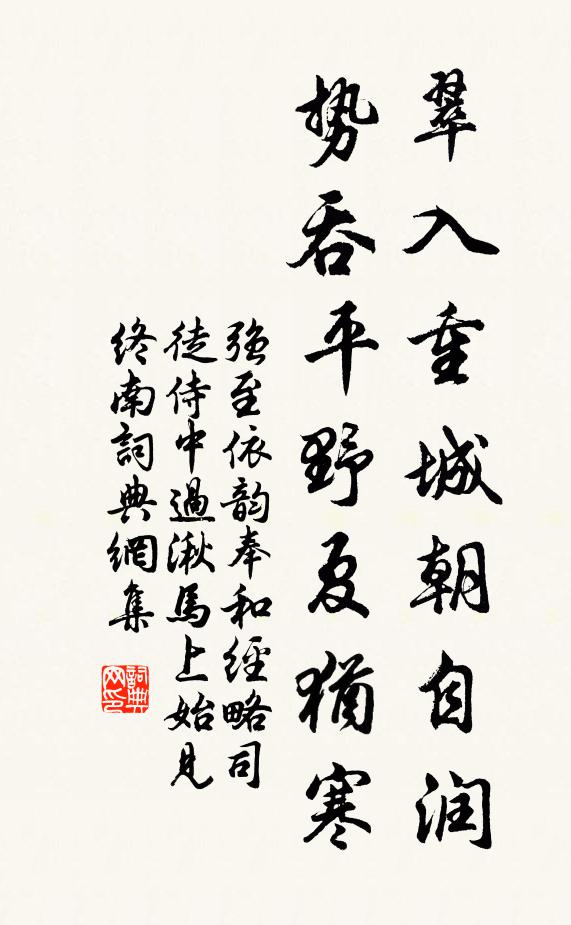 翠入重城朝自润
势吞平野夏犹寒
强至依韵奉和经略司
徒侍中過湫馬上始見
终南詞典網集
詞典
网印